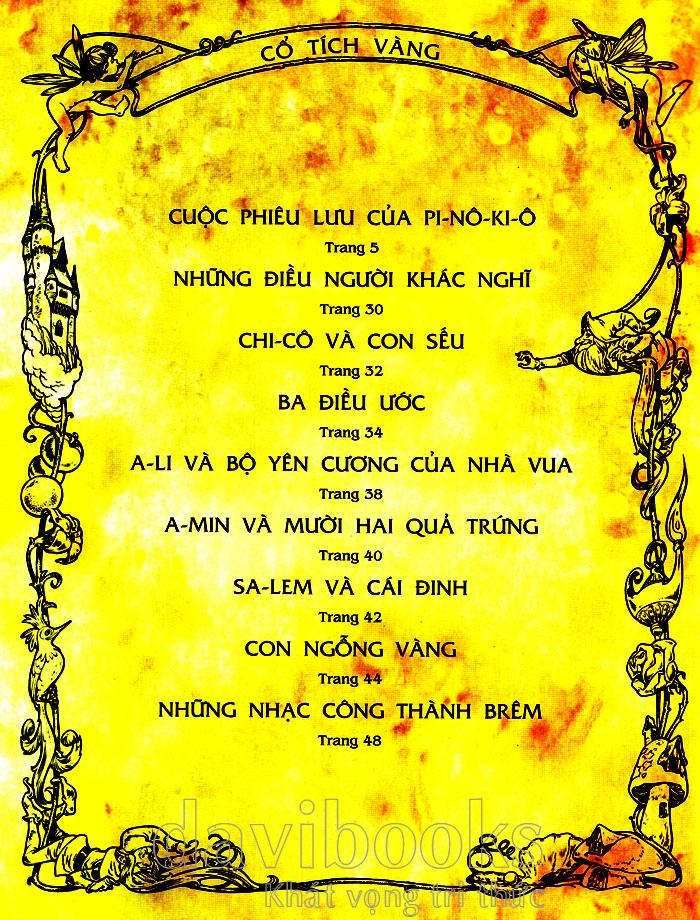 CỔ TÍCH VÀNG
CUỘC PHIÊU LƯU CỦA PI-NÔ-KI-Ô
Trang 5
NHỮNG ĐIỀU NGƯỜI KHÁC NGHĨ
Trang 30
CHI-CÔ VÀ CON SẾU
Trang 32
BA ĐIỀU ƯỚC
Trang 34
A-LI VÀ BỘ YÊN CƯƠNG CỦA NHÀ VUA
Trang 38
A-MIN VÀ MƯỜI HAI QUẢ TRỨNG
Trang 40
SA-LEM VÀ CÁI ĐINH
Trang 42
CON NGỖNG VÀNG
Trang 44
NHỮNG NHẠC CÔNG THÀNH BRÊM
Trang 48
davibooks
Khát vọng tri thức